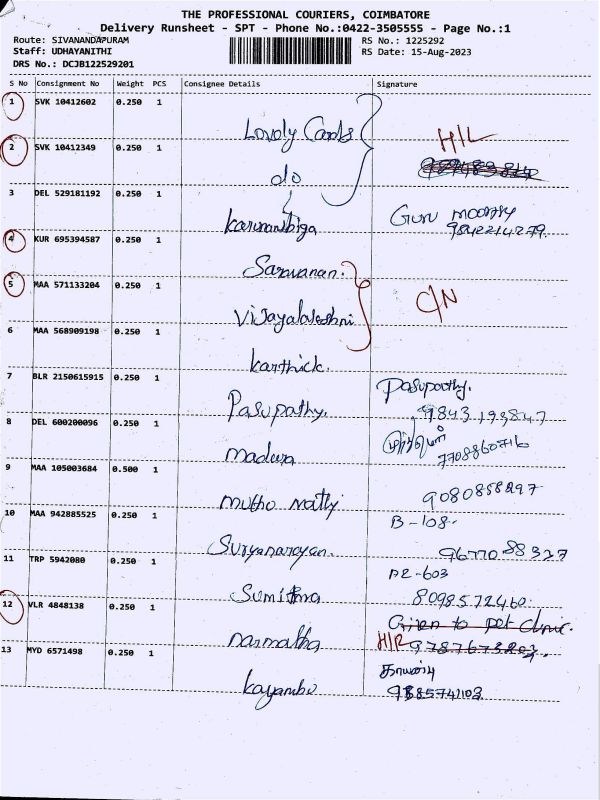 THE PROFESSIONAL COURIERS, COIMBATORE
Delivery Runsheet - SPT - Phone No.:0422-3505555 - Page No.:1
Route: SIVANANDAPURAM
Staff: UDHAYANITHI
DRS No.: DCJB122529201
RS No.: 1225292
RS Date: 15-Aug-2023
S No Consignment No Weight PCS Consignee Details Signature
1 SVK 10412602 0.250 1
Lovely Cards H/L
2 SVK 10412349 0.250 1
do
3 DEL 529181192 0.250 1
Karunambiga Guru moorthy
9842214279
4 KUR 695394587 0.250 1
Saravanan.
5 MAA 571133204 0.250 1
Vijayalakshmi C/N
6 MAA 568909198 0.250 1
Karthick.
7 BLR 2150615915 0.250 1
Pasupathy. Pasupathy.
9843193847
8 DEL 600200096 0.250 1
madura 7708860716
9 MAA 105003684 0.500 1
9080858297
10 MAA 942885525 0.250 1 B-108.
Suryanarayan. 9677088327
11 TRP 5942080 0.250 1
Sumithra 8098572460
12 VLR 4848138 0.250 1 Given to pet clinic.
Narmatha H/R 9787673203
13 MYD 6571498 0.250 1
9385741103